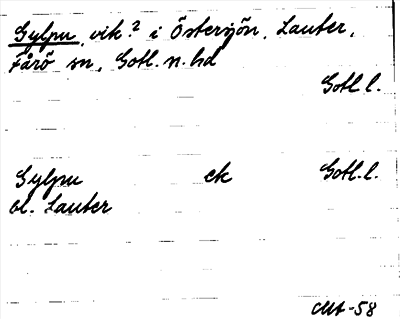 Gylpu, vik? i Östersjön, Lauter,
Fårö sn, Gotl. n. hd
Gotl. l.
Gylpu ek Gotl. l.
ol. Lauter
-58